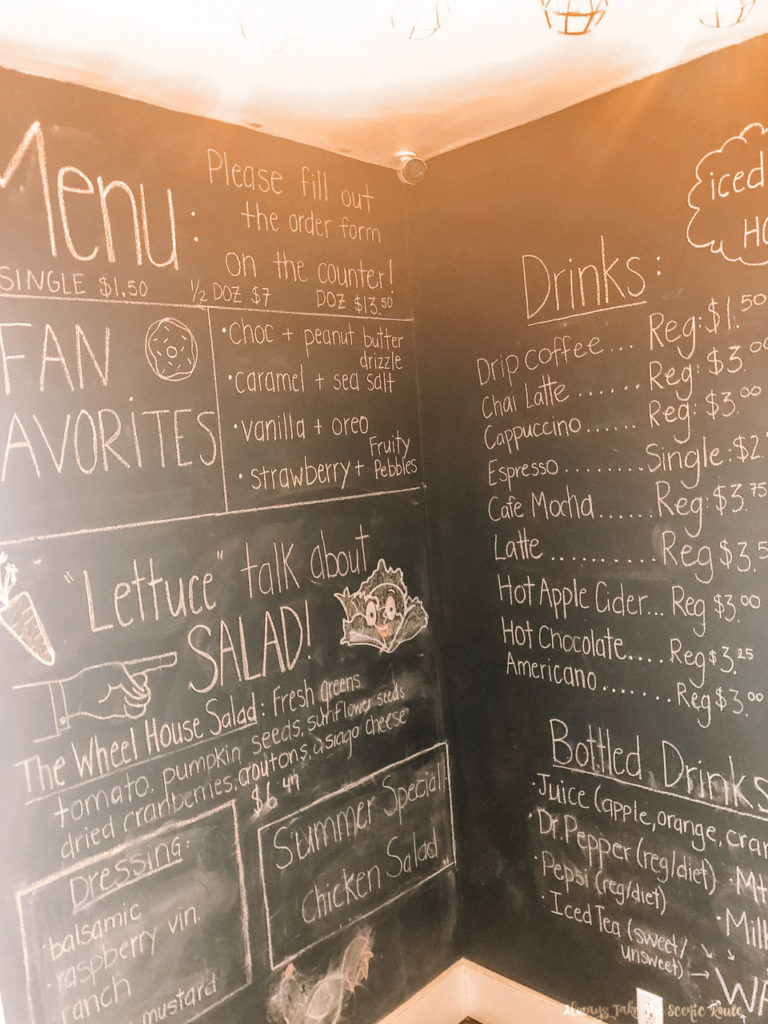 Menu:
Please fill out
the order form
on the counter!
SINGLE $1.50 ½ DOZ $7 DOZ $13.50
FAN
FAVORITES
• choc + peanut butter
drizzle
• caramel + sea salt
• vanilla + oreo
• strawberry + Fruity
Pebbles
"Lettuce" talk about
SALAD!
The Wheel House Salad: Fresh greens
tomato, pumpkin seeds, sunflower seeds
dried cranberries, croutons, asiago cheese
$6.49
Dressing:
• balsamic
• raspberry vin.
• ranch
mustard
Summer Special
Chicken Salad
iced
HO
Drinks:
Drip coffee... Reg: $1.50
Chai Latte....... Reg: $3.00
Cappuccino...... Reg: $3.00
Espresso........ Single: $2.
Cafe Mocha...... Reg: $3.75
Latte........... Reg $3.5
Hot Apple Cider... Reg $3.00
Hot Chocolate.... Reg $3.25
Americano........ Reg $3.00
Bottled Drinks
• Juice (apple, orange, cran
• Dr. Pepper (reg/diet) • Mt
• Pepsi (reg/diet) • Milk
• Iced Tea (sweet/
unsweet) → WA
Always Take the Scenic Route